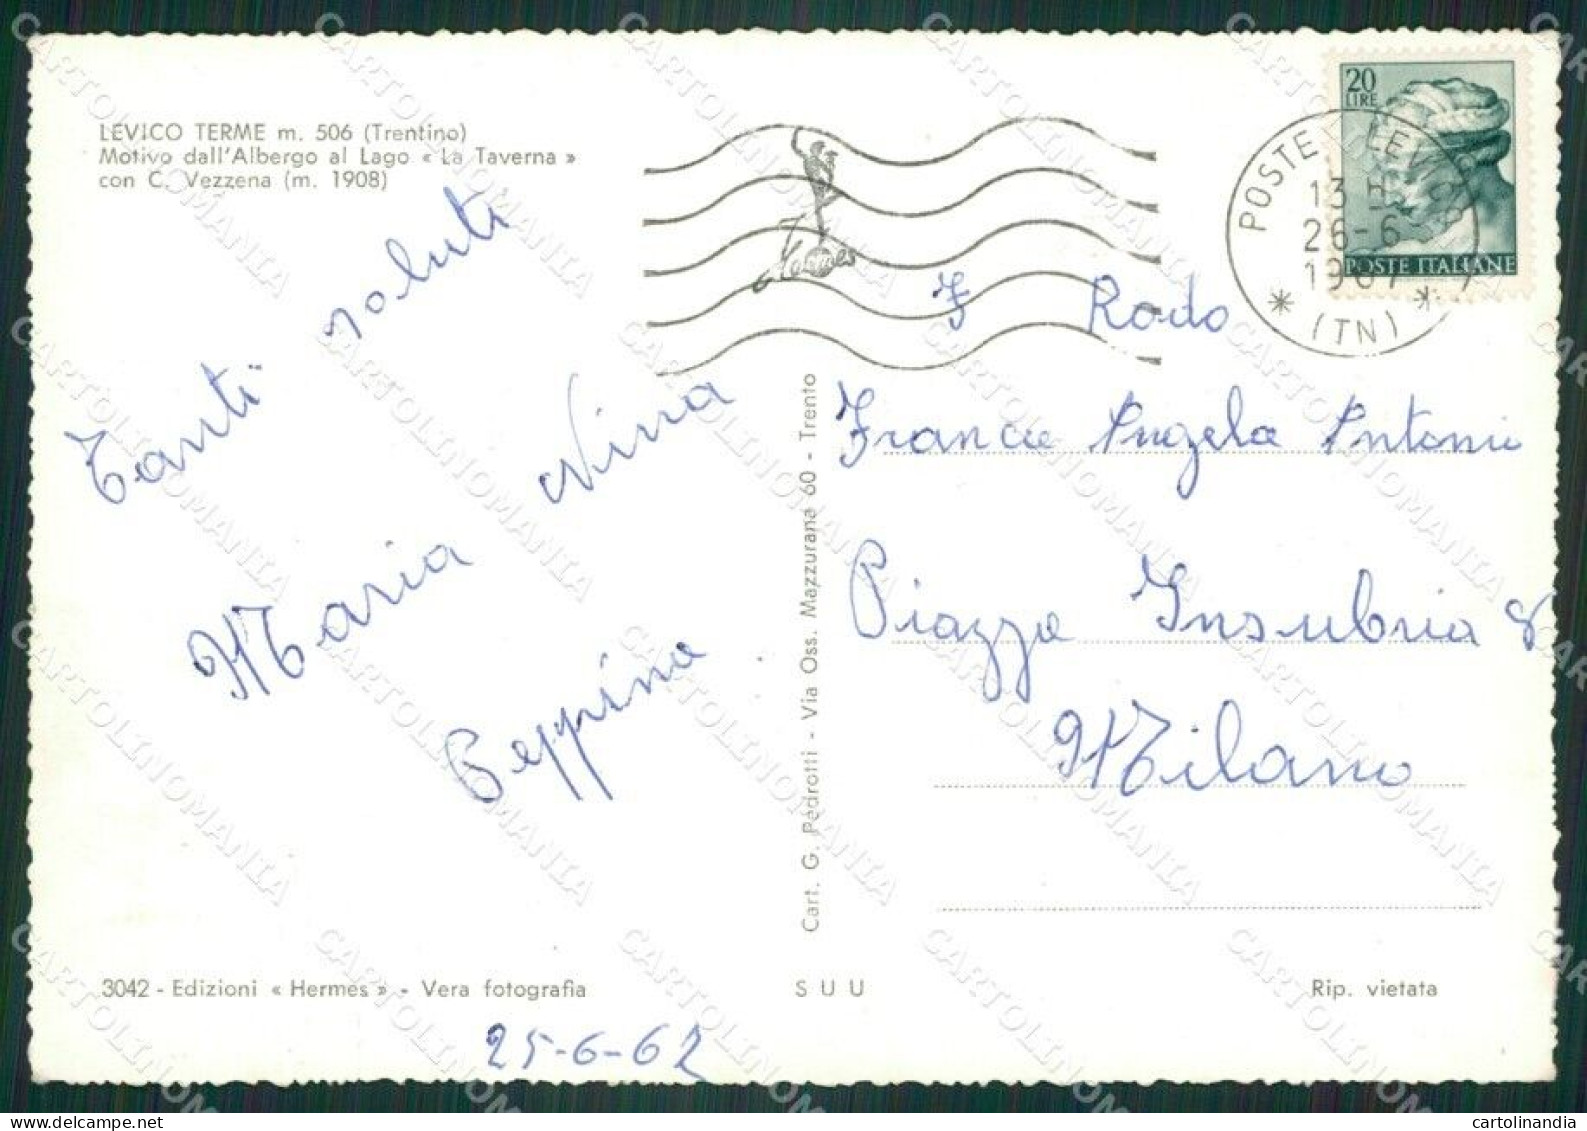 LEVICO TERME m. 506 (Trentino)
Motivo dall'Albergo al Lago « La Taverna »
con C. Vezzena (m. 1908)
20
LIRE
POSTE ITALIANE
POSTE LEVICO
13 H
26-6
(TN)
Hermes
Tanti saluti
Maria Nina
Peppina
F Rodo
Piazza Insubria 8
Milano
Cart. G. Pedrotti - Via Oss. Mazzurana 60 - Trento
3042 - Edizioni « Hermes » - Vera fotografia
S U U
Rip. vietata
25-6-62
CARTOLINOMANIA
cartolinandia